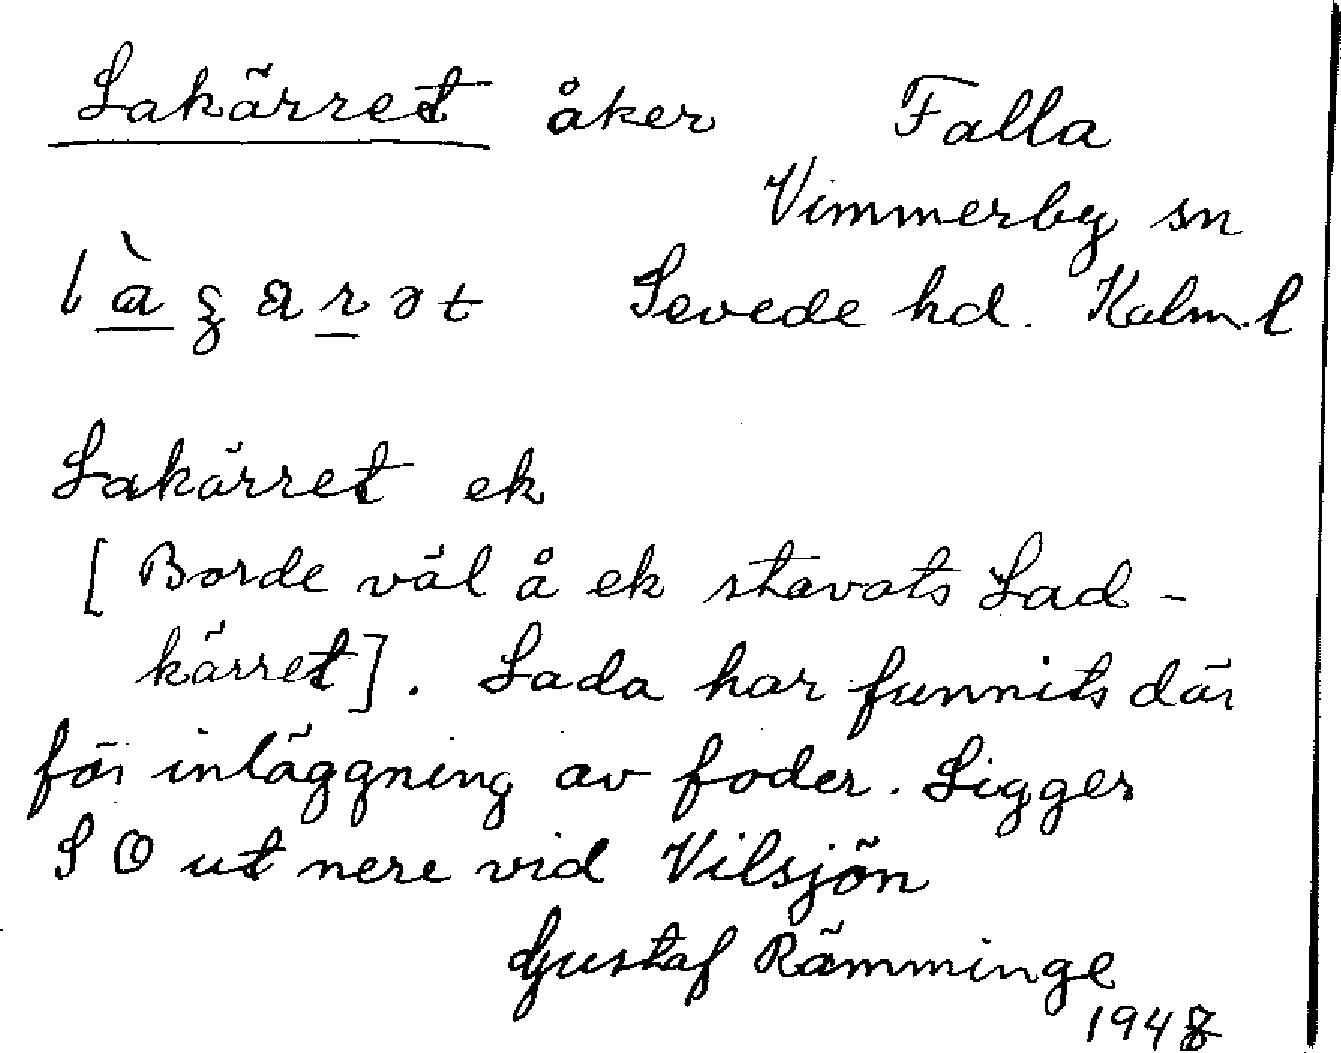 Lakärret åker Falla
Vimmerby sn
Sevede hd. Kalm. l
Lakärret ek
[ Borde väl å ek stavats Lad-
kärret]. Lada har funnits där
för inläggning av foder. Ligger
S O ut nere vid Vilsjön
Gustaf Rämminge